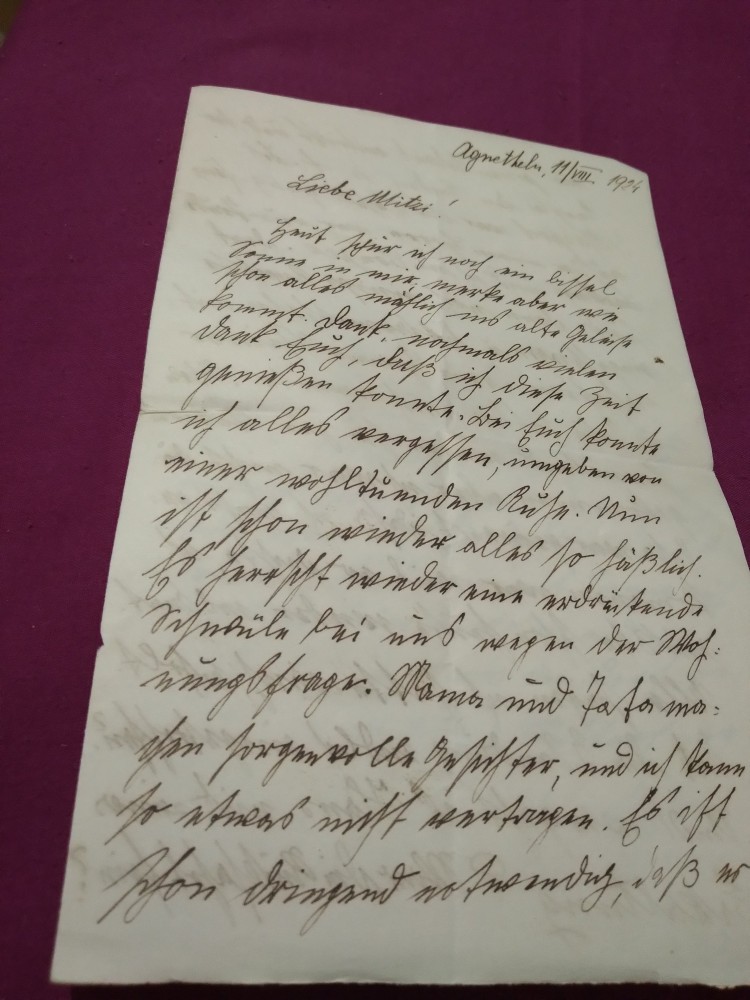 Agnetheln, 11/VIII. 1924
Liebe Mitzi!
Heut spür ich noch ein bissel
Sonne in mir, merke aber wie
schon alles mählich ins alte Geleise
kommt. Dank, nochmals vielen
Dank Euch, daß ich diese Zeit
genießen konnte. Bei Euch konnte
ich alles vergessen, umgeben von
einer wohltuenden Ruhe. Nun
ist schon wieder alles so häßlich.
Es herrscht wieder eine erdrückende
Schwüle bei uns wegen der Woh-
nungsfrage. Mama und Tata ma-
chen sorgenvolle Gesichter, und ich kann
so etwas nicht vertragen. Es ist
schon dringend notwendig, daß